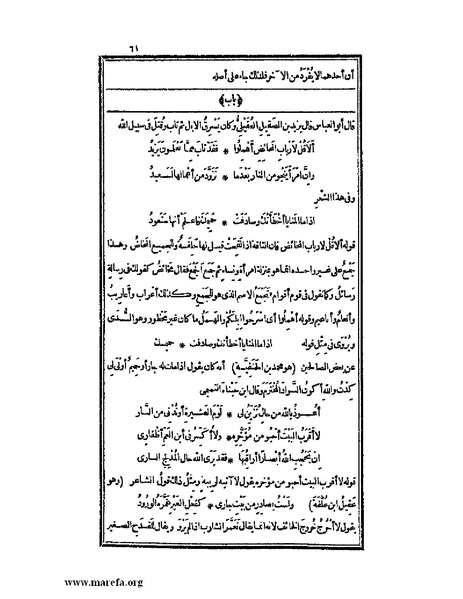 ٦١
أن أحدهما لا يُفْرَدُ من الآخر فلذلك جاء على أصله
﴿باب﴾
قال أبو العباس قال يزيد بن الصقيل العُقَيْلِيُّ وكان يَسْرِقُ الابل ثم تاب وقُتِلَ فى سبيل الله
ألا قُلْ لأرباب المخائض أهْمِلُوا * فقد تاب مما تعلمون يَزِيدُ
وإنَّ امرأ يَنْجو من النار بعدما * تَزَوَّدَ من أعمالها لسعيد
وفى هذا الشعر
اذا ما المنايا أخْطَأَتْكَ وصادَفَتْ * حميمك فاعلم أنها ستعود
قوله ألا قُل لارباب المخائض فان الناقة اذا لَقِحَتْ قيل لها خلفة والجميع المخاض وهذا
جَمْعٌ على غير واحده انما هو بمنزلة امرأة ونساء ثم جَمَعَ الجَمْعَ فقال مخائض كقولك فى رسالة
رسائل وكما تقول فى قوم أقوام تَجمَعُ الاسم الذى هو للجمع وكذلك أعراب وأعاريب
وأنعام وأناعيم وقوله أهملوا أى اسرحوا إبلكم والهَمَل ما كان غير محظور وهو السُّدَى
ويُرْوَى فى مثل قوله اذا ما المنايا أخطأتك وصادفت حميمك
عن بعض الصالحين (هو محمد بن الحَنَفِيَّة) أنه كان يقول اذا مات له جار أو حميم أولى لى
كِدْتُ والله أكون السَّوادَ المُخْتَرَم وقال ابن حَبْناء التميمى
أعوذ بالله من حالٍ تُزَيِّنُ لى * لَوْمَ العشيرة أو تُدْنى من النار
لا أقْرَبُ البيتَ أحبو من مُؤَخَّرِه * ولا أُكَسِّرُ فى ابن العم أظفارى
إن يحجب الله أبصارا أراقبها * فقد يَرَى اللهُ حال المُدْلِجِ السارى
قوله لا أقرب البيت أحبو من مؤخره يقول لا آتيه لِرِيبة ومثل ذلك قول الشاعر (وهو
عقيل ابن عُلَّفة) ولستُ بصادرٍ من بيت جارى * كفعل العَيْرِ غَمَّرَه الورود
يقول لا أخرج خروج الخائف لانه انما يقال تَغَمَّرَ الشارب اذا لم يَرْوَ ويقال للقدح الصغير
www.marefa.org